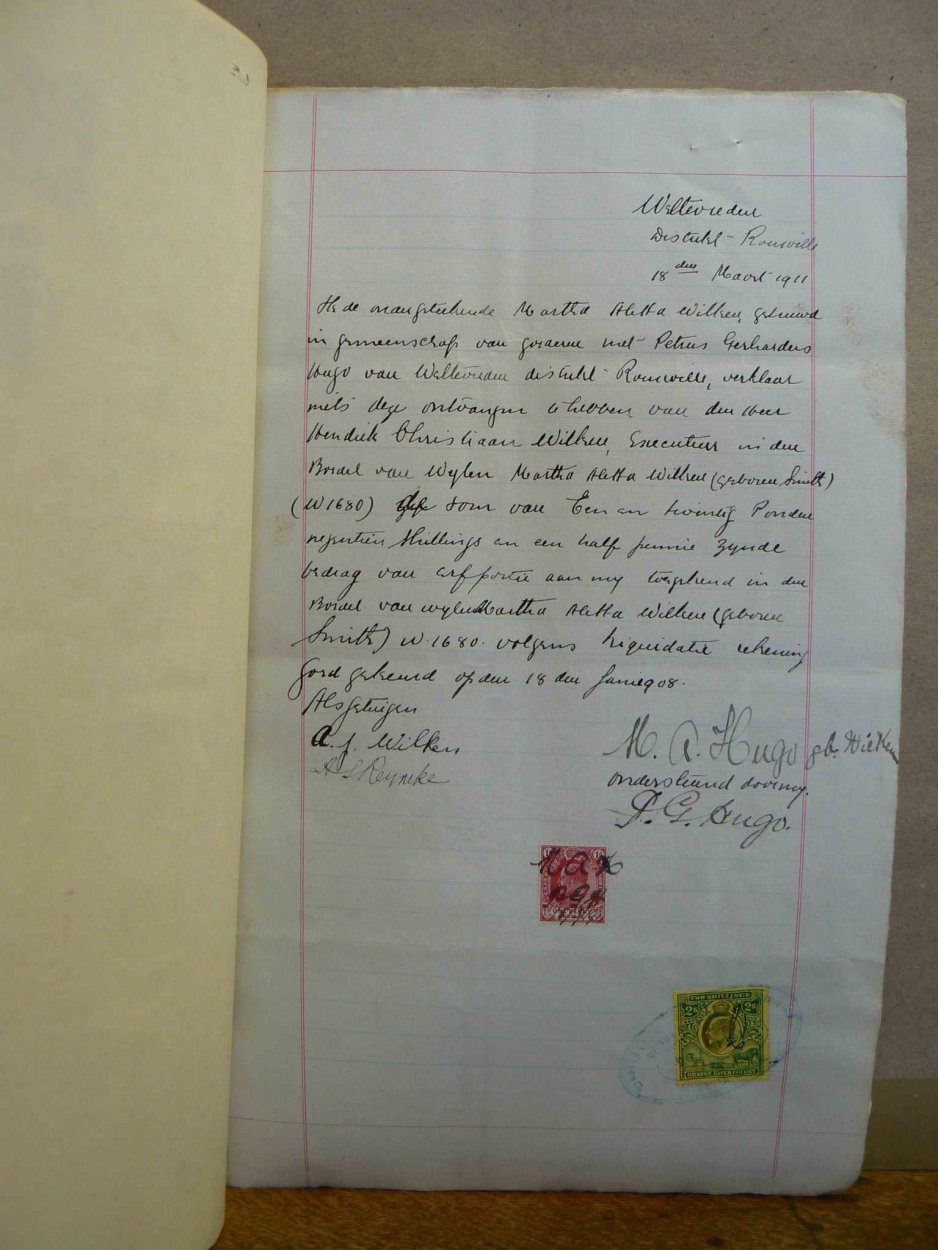 Weltevreden
Distrikt Rouxville
18 den Maart 1911
Ik de ondergetekende Martha Aletta Wilken, getrouwd
in gemeenschap van goederen met Petrus Gerhardus
Hugo van Weltevreden distrikt Rouxville, verklaar
mits deze ontvangen te hebben van den Heer
Hendrik Christiaan Wilken, Executeur in den
Boedel van Wylen Martha Aletta Wilken (geboren Smith)
(W1680) de som van Een en twintig Ponden
negentien Shillings en een half pennie zynde
bedrag van erfportie aan my toegekend in den
Boedel van wylen Martha Aletta Wilken (geboren
Smith) W.1680. volgens Liquidatie rekening
goed gekeurd op den 18 den Junie 1908.
Als getuigen
A. J. Wilken
M. A. Hugo gb. Wilken
A S Reyneke
ondersteund door my.
P. G. Hugo.
M A H
P G H
TWO SHILLINGS
2s 2s
ORANGE RIVER COLONY